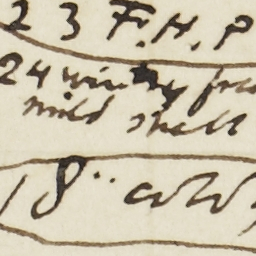 23 F.H.P
24 windy fre
mild smell
18 " cold,